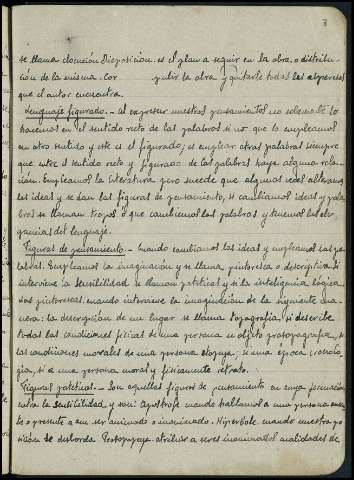 3
se llama elocución Disposición. es el plan a seguir en la obra, o distribu-
ción de la misma. Cor pulir la obra y quitarle todas las asperezas
que el autor encuentra.
Lenguaje figurado.- Al expresar nuestros pensamientos no solamente lo
hacemos en el sentido recto de las palabras si no que lo empleamos
en otro sentido y este es el figurado; es emplear otras palabras siempre
que entre el sentido recto y figurado de las palabras haya alguna rela-
ción. Empleamos la literatura pero sucede que algunas veces alteramos
las ideas y se dan las figuras de pensamiento, si cambiamos ideas y pala-
bras se llaman tropos o que cambiemos las palabras y tenemos las ele-
gancias del lenguaje.
Figuras de pensamiento.- Cuando cambiamos las ideas y empleamos las pa-
labras. Empleamos la imaginación y se llama pintoresca o descriptiva. Si
interviene la sensibilidad se llaman patéticas y si la inteligencia lógica.
Las pintorescas cuando interviene la imaginación de la siguiente ma-
nera: la descripción de un lugar se llama topografía; si describe
todas las condiciones físicas de una persona u objeto prosopografía, si
las condiciones morales de una persona etopeya, si una época cronolo-
gía, si a una persona moral y físicamente retrato.
Figuras patéticas.- Son aquellas figuras de pensamiento en cuya formación
entra la sensibilidad y son: Apóstrofe cuando hablamos a una persona ausen-
te o presente a un ser animado o inanimado. Hipérbole cuando nuestra pa-
sión se desborda. Prosopopeya atribuir a seres inanimados cualidades de